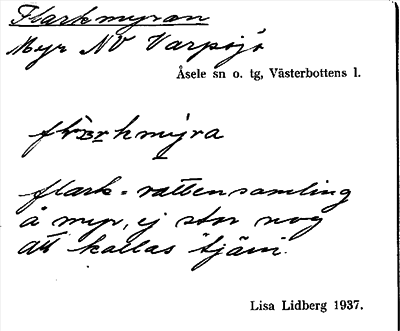 Flarkmyran
Myr NV Varpsjö
Åsele sn o. tg, Västerbottens l.
flark = vattensamling
å myr, ej stor nog
att kallas "tjärn".
Lisa Lidberg 1937.